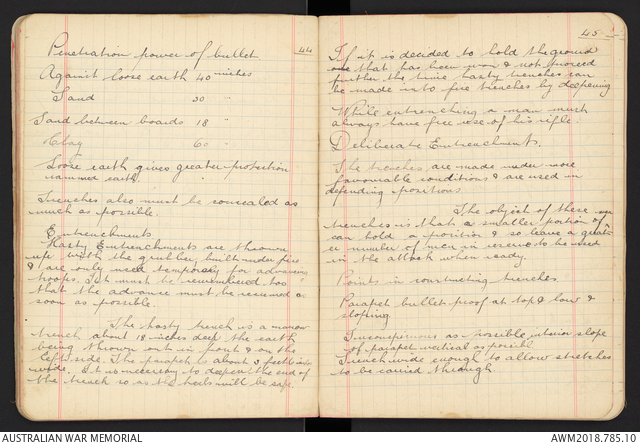 44
Penetration power of bullet
Against loose earth 40 inches
Sand 30 "
Sand between boards 18 "
Clay 60 "
Loose earth gives greater protection
rammer earth
Trenches also must be concealed as
much as possible.
Entrenchments
Hasty Entrenchments are thrown
up with the grubber, built under fire
& are only used temporary for advancing
troops. It must be remembered too
that the advance must be resumed as
soon as possible.
The hasty trench is a narrow
trench about 18 inches deep the earth
being thrown out in front & on the
left side. The parapet is about 3 feet
wide. It is necessary to deepen the end of
the trench so as the heels will be safe.
45
If it is decided to hold the ground
one that has been won & not proceed
further the time hasty trenches can
be made into fire trenches by deepening
While entrenching a man must
always have free use of his rifle.
Deliberate Entrenchments.
The trenches are made under more
favourable conditions & are used in
defending positions
The object of these
trenches is that a smaller portion of
can hold a position & so leave a greater
number of men in reserve to be used
in the attack when ready.
Points in constructing trenches
Parapet bullet proof at top & low &
sloping
Inconspicuous as possible, interior slope
of parapet vertical as possible
Trench wide enough to allow stretches
to be carried through
AUSTRALIAN WAR MEMORIAL
AWM2018.785.10